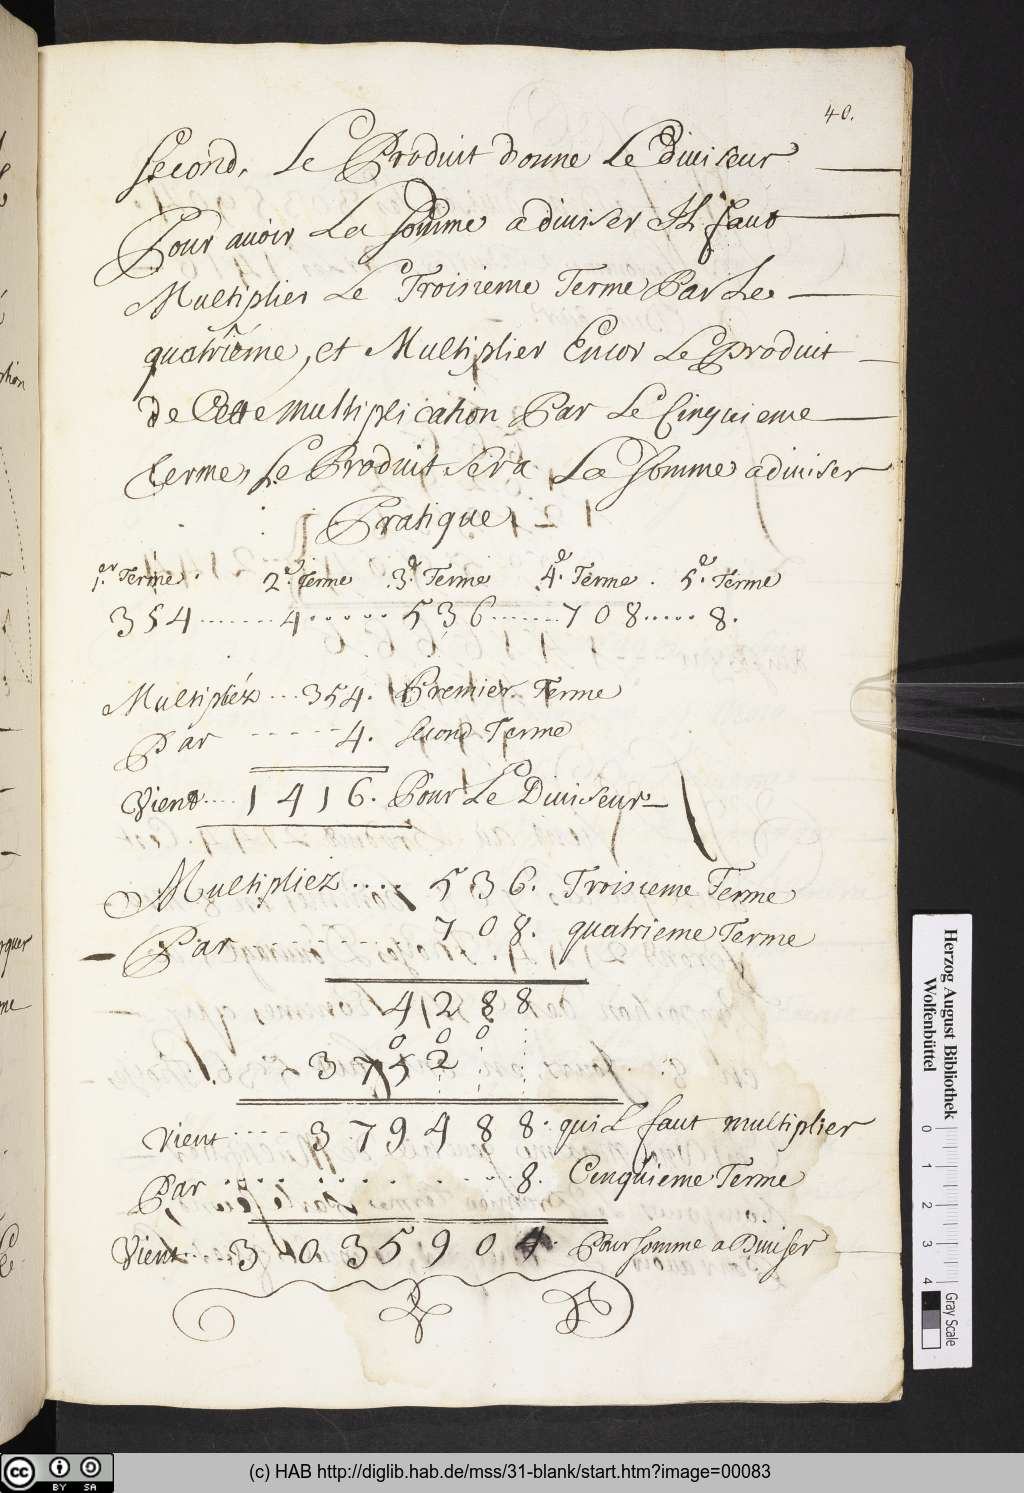 40.
second, Le Produit donne Le diuiseur
Pour auoir La somme a diuiser Il faut
Multiplier Le Troisieme Terme Par Le
quatriéme, et Multiplier Encor Le produit
de Cette multiplication Par Le Cinquieme
terme, Le Produit sera La somme a diuiser
Pratique
1.er Terme. 2.e terme 3.e Terme 4.e Terme. 5.e Terme
354 ....... 4 ...... 536 ....... 708 ..... 8.
Multipliéz ... 354. Premier Terme
Par ----- 4. second Terme
Vient .... 1416. Pour Le Diuiseur
Multipliez .... 536. Troisieme Terme
Par 708. quatrieme Terme
4288
000
3752
Vient ---- 379488. quil faut multiplier
Par ........ 8. Cinquieme Terme
Vient ... 3035904. Pour somme a Diuiser
Herzog August Bibliothek
Wolfenbüttel
0 1 2 3 4
Gray Scale
cc BY SA
(c) HAB http://diglib.hab.de/mss/31-blank/start.htm?image=00083